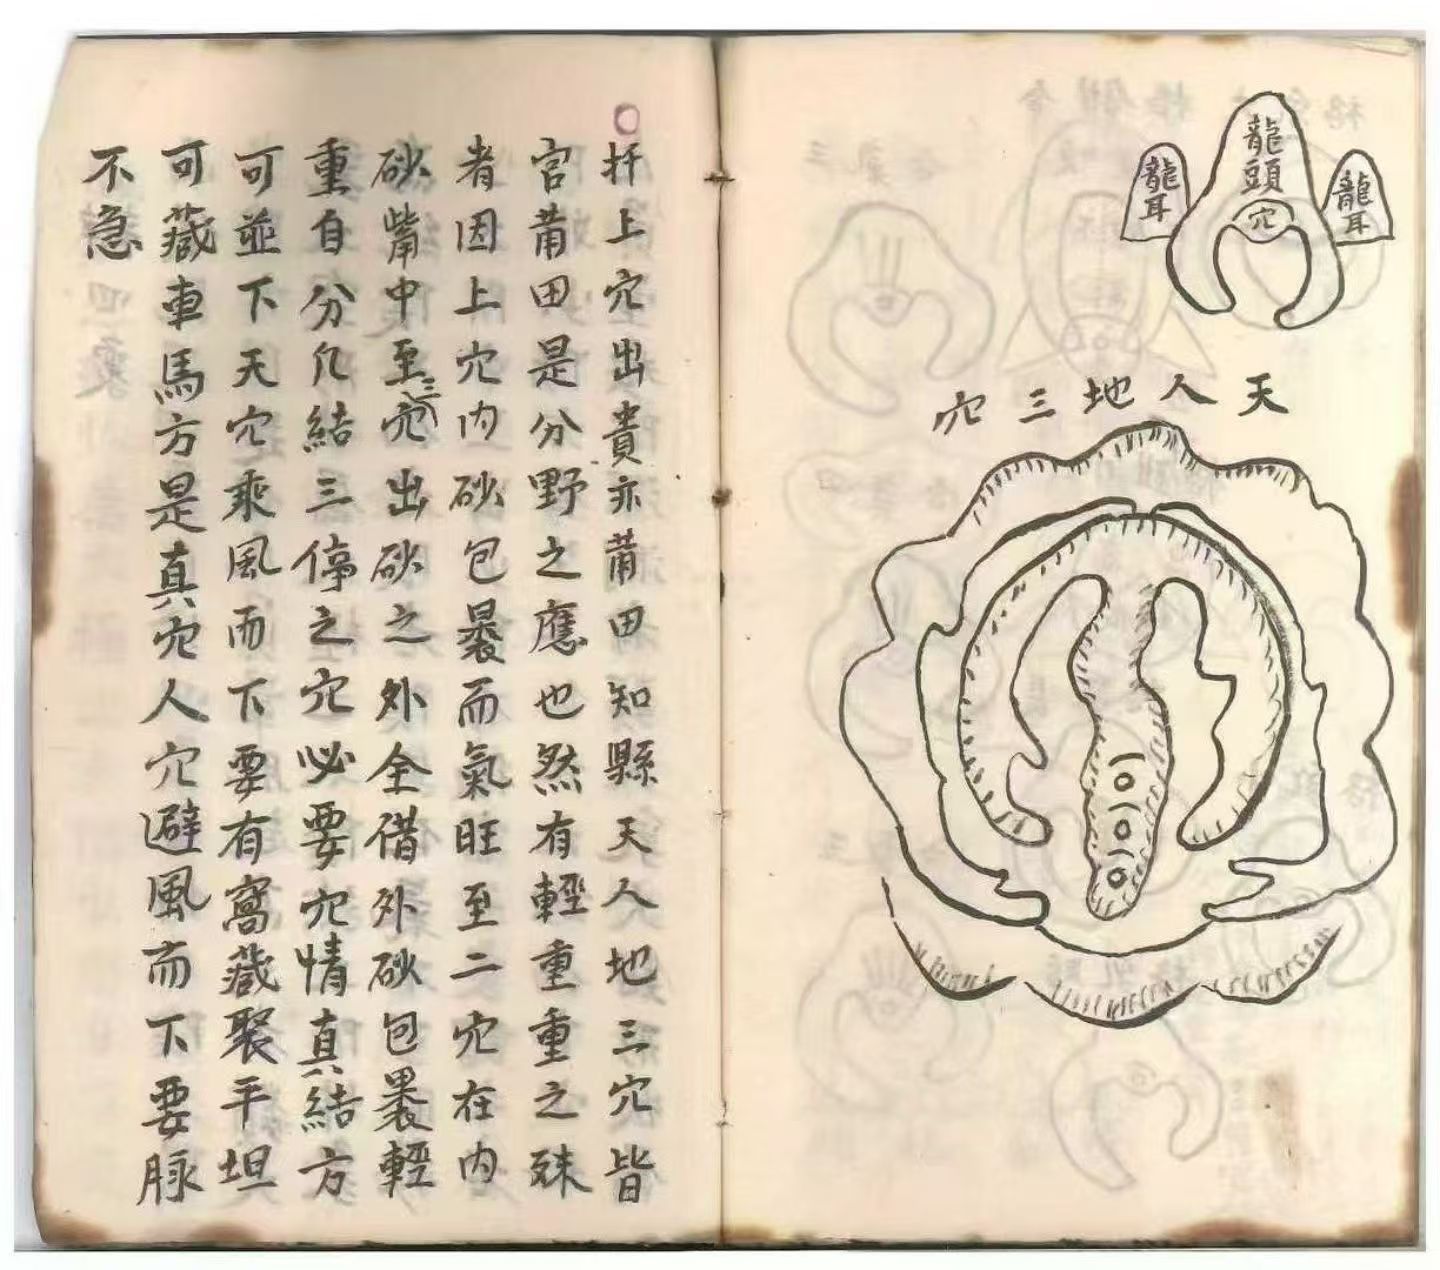 龍耳
龍頭
穴
龍耳
天人地三穴
扦上穴出貴亦莆田知縣天人地三穴皆
宮莆田是分野之應也然有輕重重之殊
者因上穴内砂包裹而氣旺至二穴在内
砂嘴中至三穴出砂之外全借外砂包裹輕
重自分凢結三停之穴必要穴情真結方
可並下天穴乘風而下要有窩藏聚平坦
可藏車馬方是真穴人穴避風而下要脉
不急